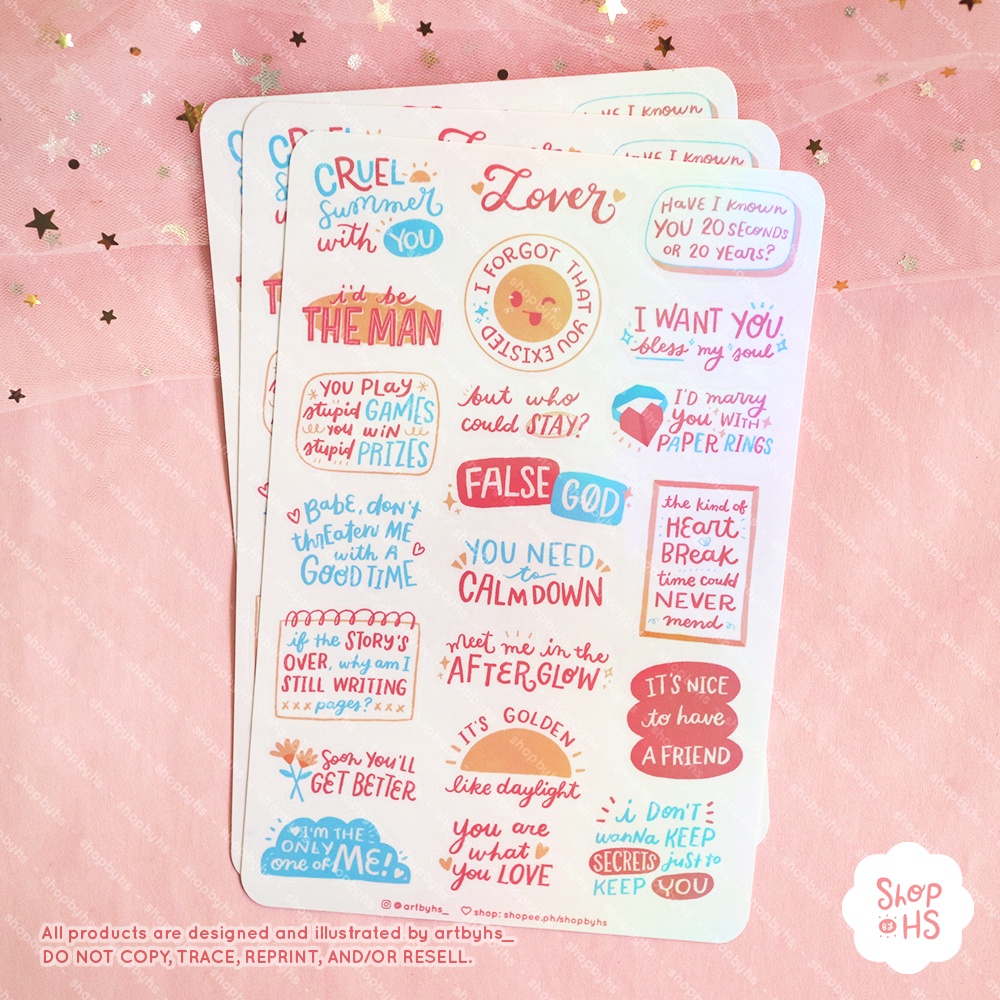 CRUEL
summer
with YOU
Lover
HAVE I KNOWN
YOU 20 SECONDS
OR 20 YEARS?
I FORGOT THAT YOU EXISTED
i'd be
THE MAN
I WANT YOU
bless my soul
YOU PLAY
stupid GAMES
YOU WIN
stupid PRIZES
but who
could STAY?
I'D marry
you WITH
PAPER RINGS
FALSE
GOD
Babe, don't
thrEaten ME
with A
GOOD TIME
YOU NEED
to
CALM DOWN
the kind of
HEart
BREak
time could
NEVER
mend
if the STORY'S
OVER, why am I
STILL WRITING
pages?
meet me in the
AFTERGLOW
IT'S NICE
to have
A FRIEND
IT'S GOLDEN
like daylight
Soon YOU'LL
GET BETTER
I'M THE
ONLY
one of ME!
you are
what
you LOVE
i DON'T
wanna KEEP
SECRETS just to
KEEP YOU
@artbyhs_ shop: shopee.ph/shopbyhs
HAVE I KNOWN
HAVE I KNOWN
CRUEL
All products are designed and illustrated by artbyhs_
DO NOT COPY, TRACE, REPRINT, AND/OR RESELL.
SHOP
HS
shopbyhs